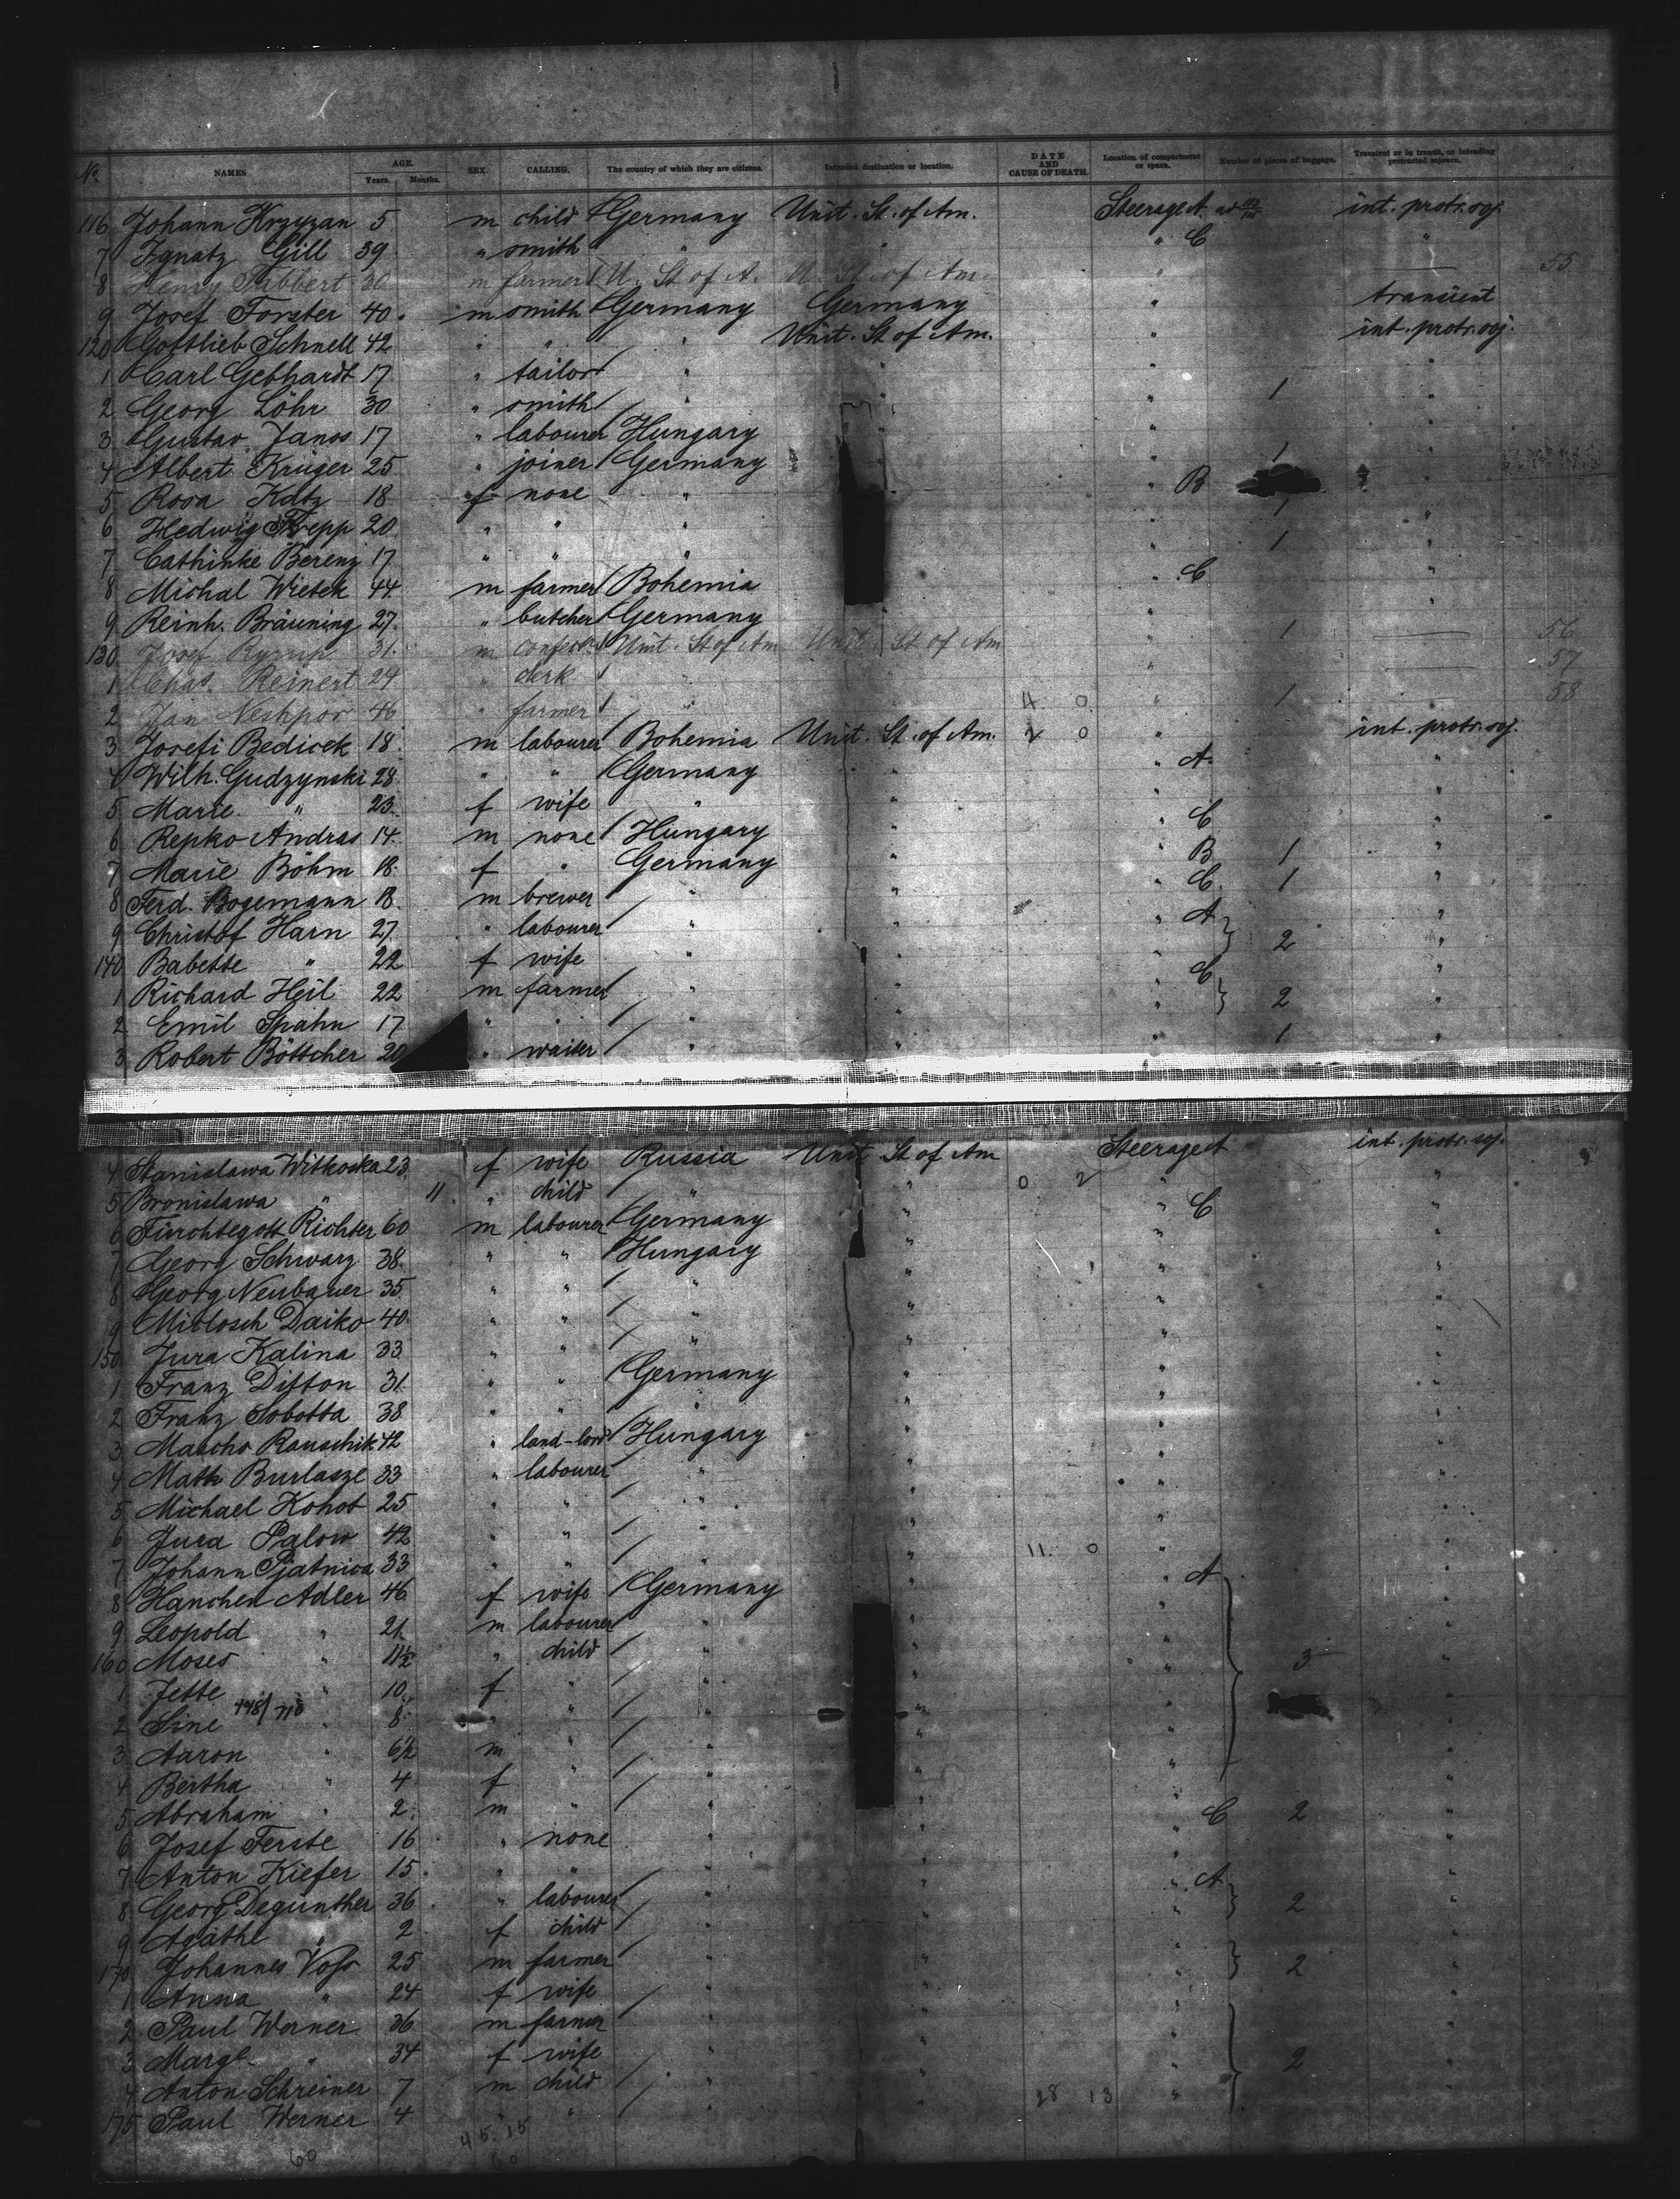 No. NAMES AGE. Years. Months. SEX. CALLING. The country of which they are citizens. Intended destination or location. DATE AND CAUSE OF DEATH. Location of compartment or space. Number of pieces of baggage. Transient or in transit, or intending protracted sojourn.
116 Johann Krzyzan 5 m child Germany Unit. St. of Am. Steerage A int. protr. soj.
7 Ignatz Gill 39 " smith " " " C "
8 Henry Tibbert 30 m farmer U. St of A. U. St. of Am. " — 55
9 Josef Forster 40 m smith Germany Germany " transient
120 Gottlieb Schnell 42 " " " Unit. St of Am. " int. protr. soj.
1 Carl Gebhardt 17 " tailor " " " "
2 Georg Löhr 30 " smith " " " 1 "
3 Gustav Janos 17 " labourer Hungary " "
4 Albert Krüger 25 " joiner Germany " 1 "
5 Rosa Katz 18 f none " " B "
6 Hedwig Trepp 20 " " " " 1 "
7 Cathinke Berenz 17 " " " " 1 "
8 Michal Wietek 44 m farmer Bohemia " C "
9 Reinh. Bräuning 27 " butcher Germany " "
130 Josef Ryrup 31 m confect. Unit. St of Am Unit. St of Am " 1 — 56
1 Chas. Reinert 24 " clerk " " — 57
2 Jan Neshpor 46 " farmer " 4 0 " 1 — 58
3 Josefi Bedicek 18 m labourer Bohemia Unit. St. of Am. 2 0 " int. protr. soj.
4 Wilh. Gudzynski 28 " " Germany " " A "
5 Marie " 23 f wife " " " "
6 Repko Andras 14 m none Hungary " " C "
7 Marie Böhm 18 f " Germany " " B 1 "
8 Ferd. Bogemann 18 m brewer " " " C 1 "
9 Christof Harn 27 " labourer " " " A "
140 Babette " 22 f wife " " " 2 "
1 Richard Heil 22 m farmer " " " C "
2 Emil Spahn 17 " " " " " 2 "
3 Robert Böttcher 20 " waiter " " " 1 "
4 Stanislawa Witkoska 23 f wife Russia Unit St of Am Steerage A int. protr. soj.
5 Bronislawa " 11 " child " " 0 2 " "
6 Fürchtegott Richter 60 m labourer Germany " " C "
7 Georg Schwarz 38 " " Hungary " " "
8 Georg Neubauer 35 " " " " " "
9 Miblosch Daiko 40 " " " " " "
150 Jura Kalina 33 " " " " " "
1 Franz Ditton 31 " " Germany " " "
2 Franz Sobotta 38 " " " " " "
3 Mascho Rauschik 42 " land-lord Hungary " " "
4 Math Burlasze 33 " labourer " " " "
5 Michael Kohot 25 " " " " " "
6 Jura Palow 42 " " " " " "
7 Johann Pjatnica 33 " " " " 11 0 " "
8 Hanchen Adler 46 f wife Germany " " A "
9 Leopold " 21 m labourer " " " "
160 Moses " 11½ " child " " " 3 "
1 Jette " 10 f " " " " "
2 Sine " 8 " " " " " "
3 Aaron " 6½ m " " " " "
4 Bertha " 4 f " " " " "
5 Abraham " 2 m " " " " "
6 Josef Ferste 16 " none " " " C 2 "
7 Anton Kiefer 15 " " " " " "
8 Georg Degünther 36 " labourer " " " A "
9 Agathe " 2 f child " " " 2 "
170 Johannes Voss 25 m farmer " " " "
1 Anna " 24 f wife " " " 2 "
2 Paul Werner 36 m farmer " " " "
3 Marge " 34 f wife " " " 2 "
4 Anton Schreiner 7 m child " " " "
175 Paul Werner 4 " " " 28 13 " "
60 45.15
60